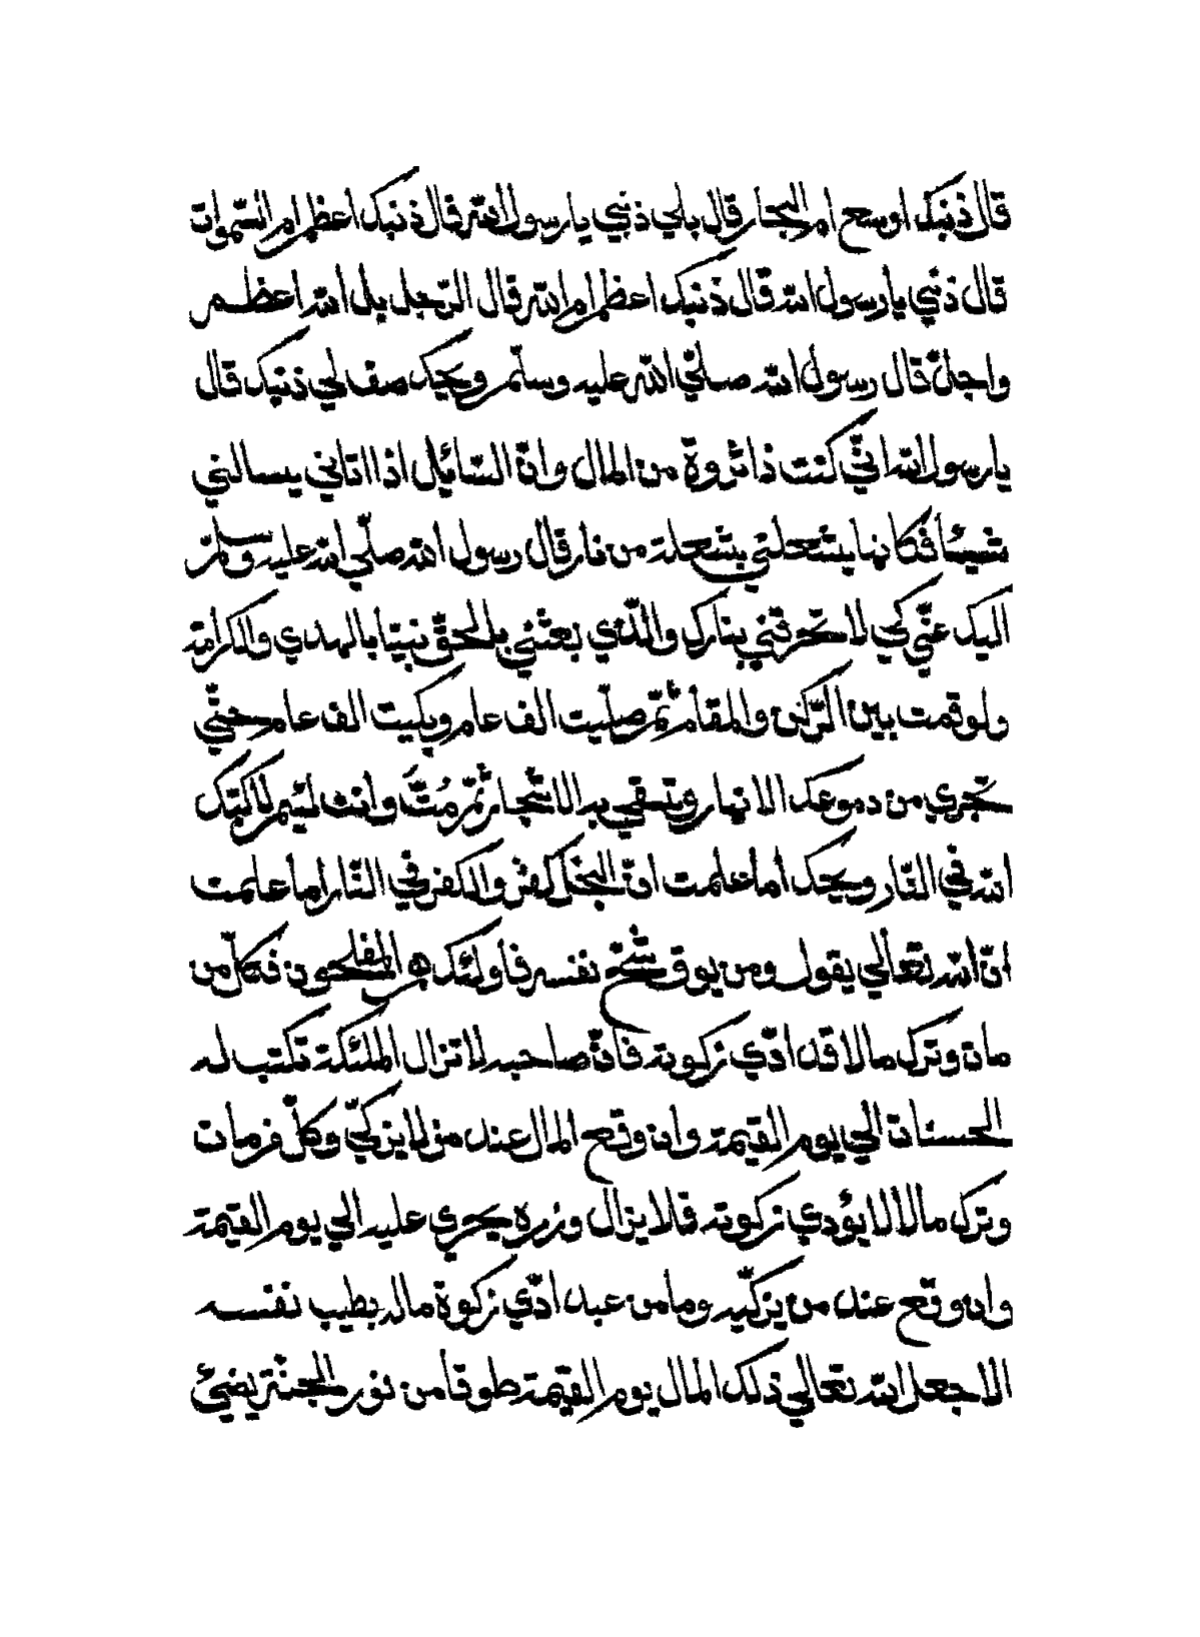 قال ذنبك اوسع ام البحار قال بلي ذنبي يا رسول الله قال ذنبك اعظم ام السّموات
قال ذنبي يا رسول الله قال ذنبك اعظم ام الله قال الرّجل بل الله اعظم
واجلّ قال رسول الله صلّي الله عليه وسلّم ويحك صف لي ذنبك قال
يا رسول الله انّي كنت ذا ثروة من المال وانّ السّائيل اذا اتاني يسالني
شيئا فكانها يشعلني بشعلة من نار قال رسول الله صلّي الله عليه وسلم
اليك عنّي كي لا تحرقني بنارك والّذي بعثني بالحقّ نبيّا بالهدي والكرامة
ولو قمت بين الرّكن والمقام ثمّ صلّيت الف عام وبكيت الف عام حتّي
تجري من دموعك الانهار وتسقي به الاشجار ثمّ مُتَّ وانت لئيم لاكبّك
الله في النّار ويحك أما علمت انّ البخل كفر والكفر في النّار اما علمت
انّ الله تعالي يقول ومن يوق شحّ نفسه فأولئك هم المفلحون فكلّ من
مات وترك مالا قد ادّي زكوته فانّ صاحبه لا تزال الملئكة تكتب له
الحسنات الي يوم القيمة وان وقع المال عند من لا يزكّي وكلّ من مات
وترك مالا لا يؤدي زكوته فلا يزال وزره يجري عليه الي يوم القيمة
وان وقع عند من يزكّيه وما من عبد ادّي زكوة ماله بطيب نفسه
الا جعل الله تعالي ذلك المال يوم القيمة طوقا من نور الجنّة يضيئ